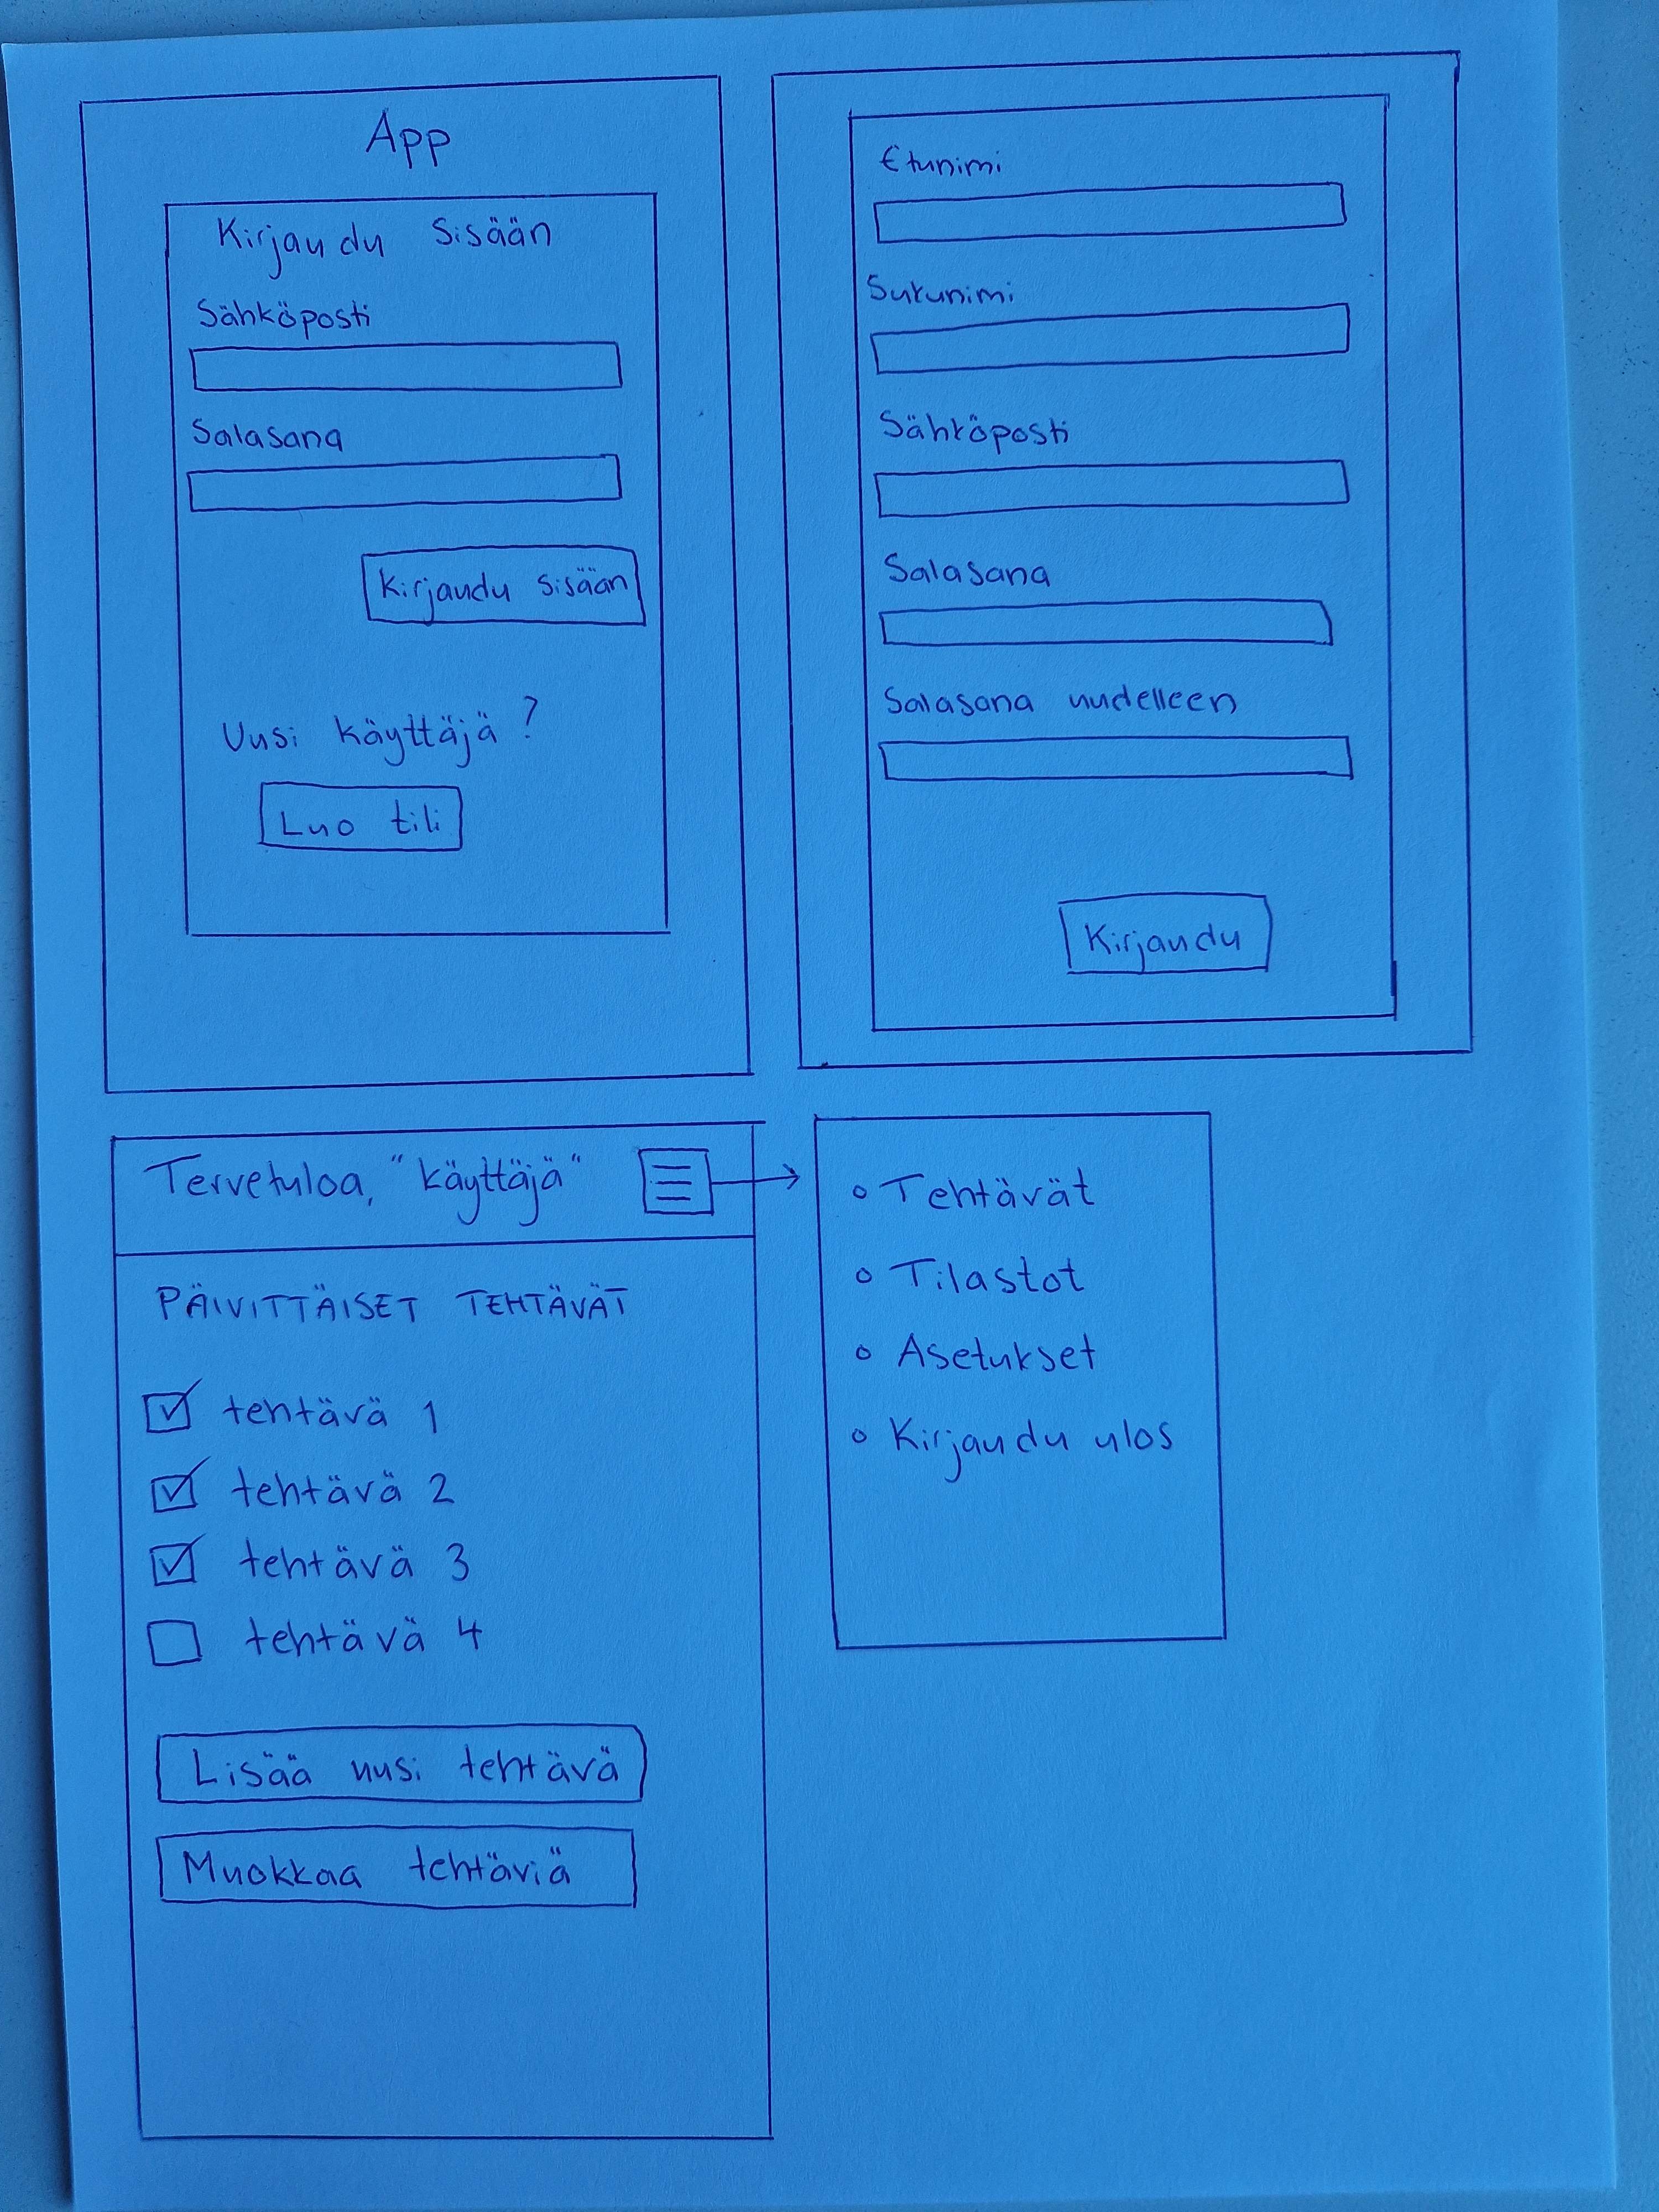 App
Kirjaudu sisään
Sähköposti
Salasana
Kirjaudu sisään
Uusi käyttäjä?
Luo tili
Etunimi
Sukunimi
Sähköposti
Salasana
Salasana uudelleen
Kirjaudu
Tervetuloa, "käyttäjä"
PÄIVITTÄISET TEHTÄVÄT
tehtävä 1
tehtävä 2
tehtävä 3
tehtävä 4
Lisää uusi tehtävä
Muokkaa tehtäviä
Tehtävät
Tilastot
Asetukset
Kirjaudu ulos